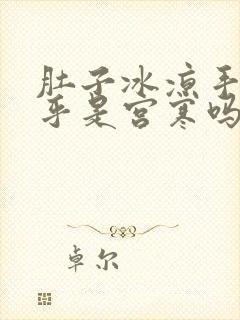 肚子冰凉手
乎是宫寒吗
卓尔